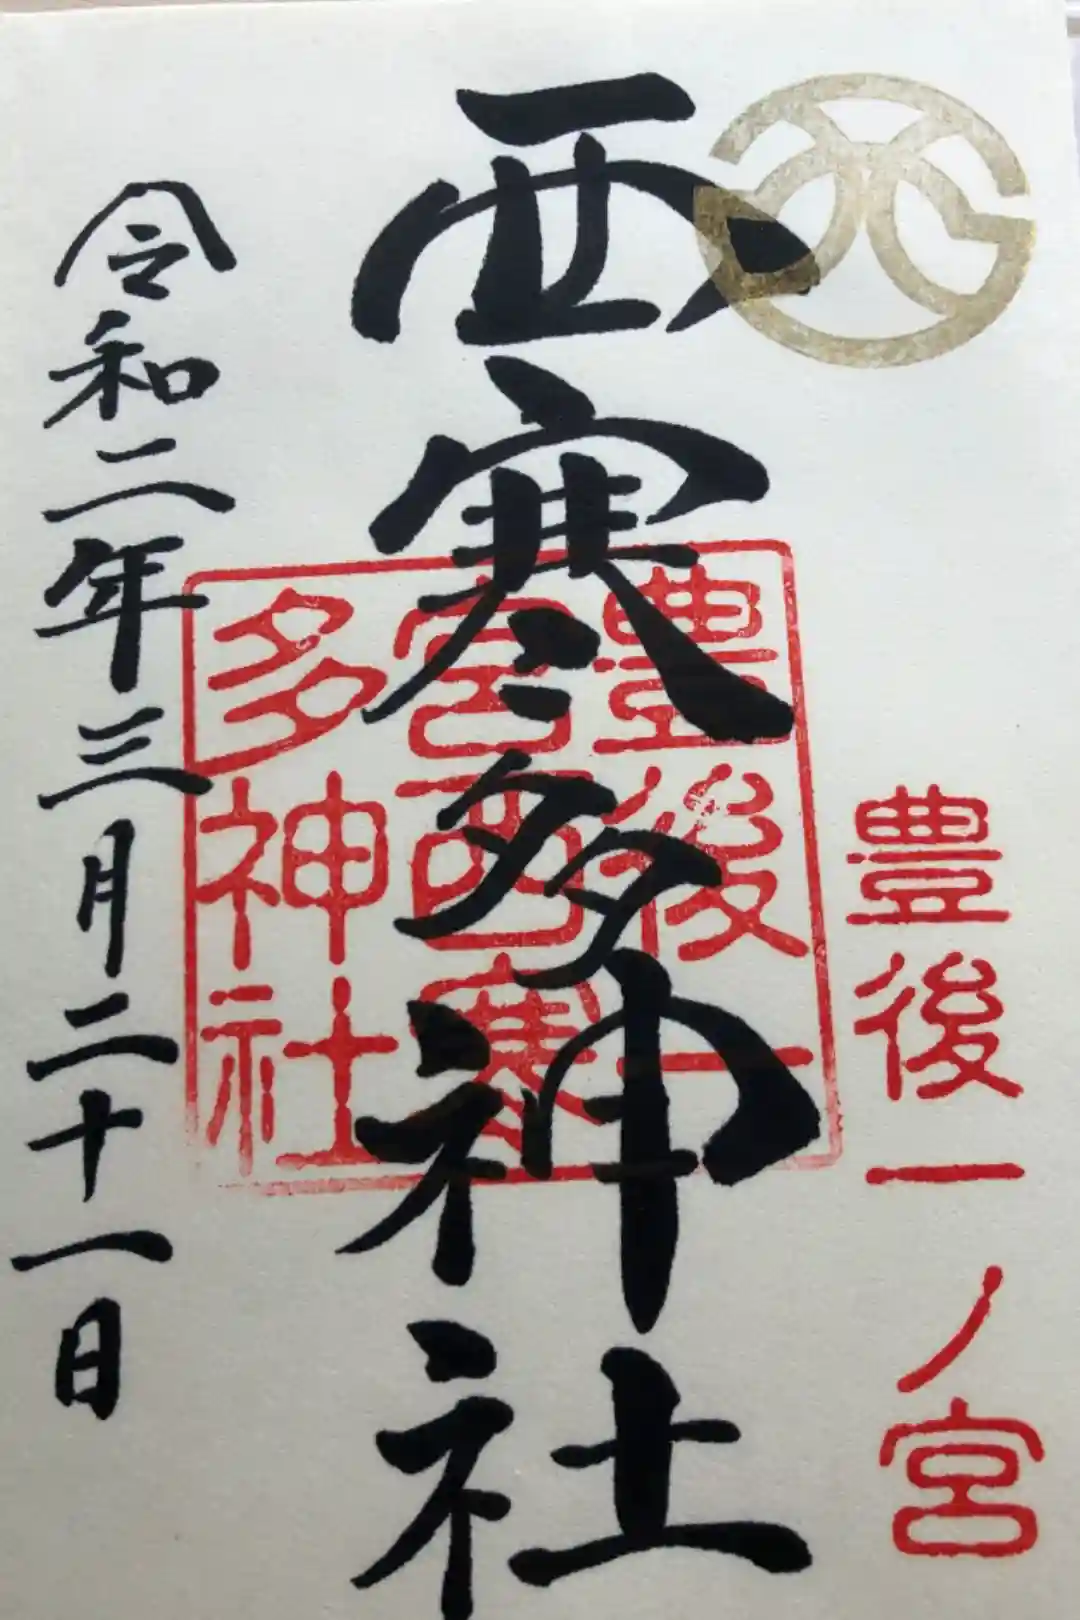 豊後一ノ宮
西寒多神社
豊後一
宮西寒
多神社
令和二年三月二十一日